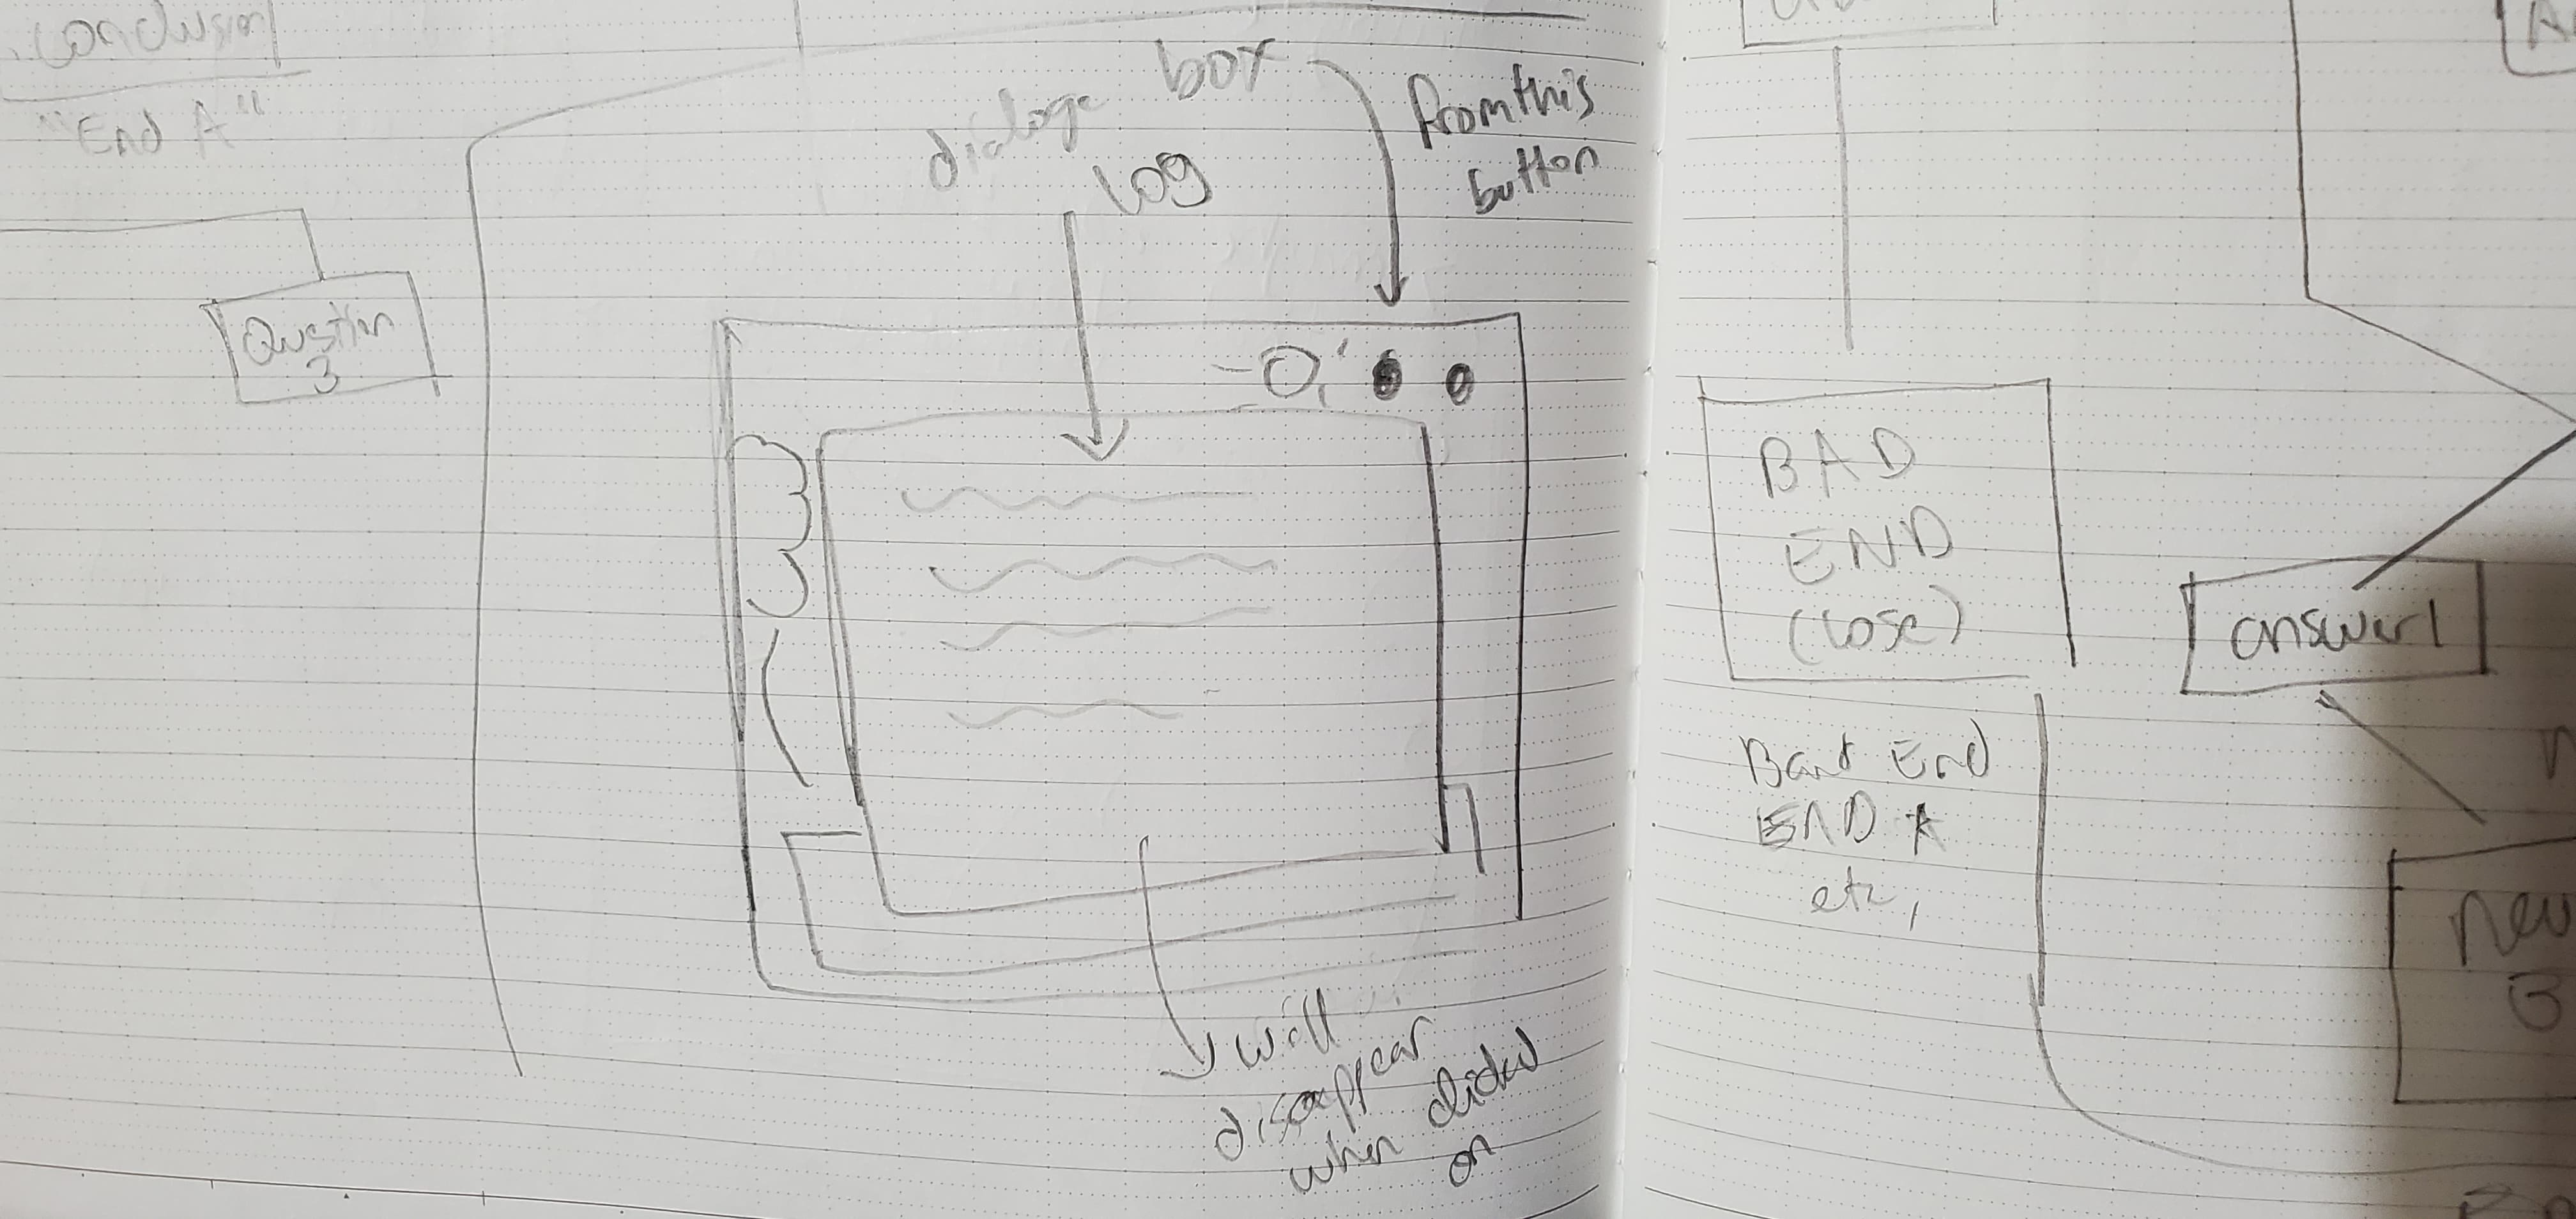 conclusion
"End A"
Question
3
dialoge box
log
from this
button
will
disappear
when clicked
on
BAD
END
(lose)
Bad End
END A
etc,
answer 1